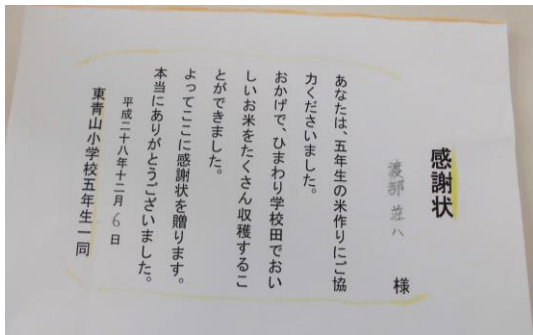 感謝状
渡部 荘八 様
あなたは、五年生の米作りにご協
力くださいました。
おかげで、ひまわり学校田でおい
しいお米をたくさん収穫するこ
とができました。
よってここに感謝状を贈ります。
本当にありがとうございました。
平成二十八年十二月6日
東青山小学校五年生一同